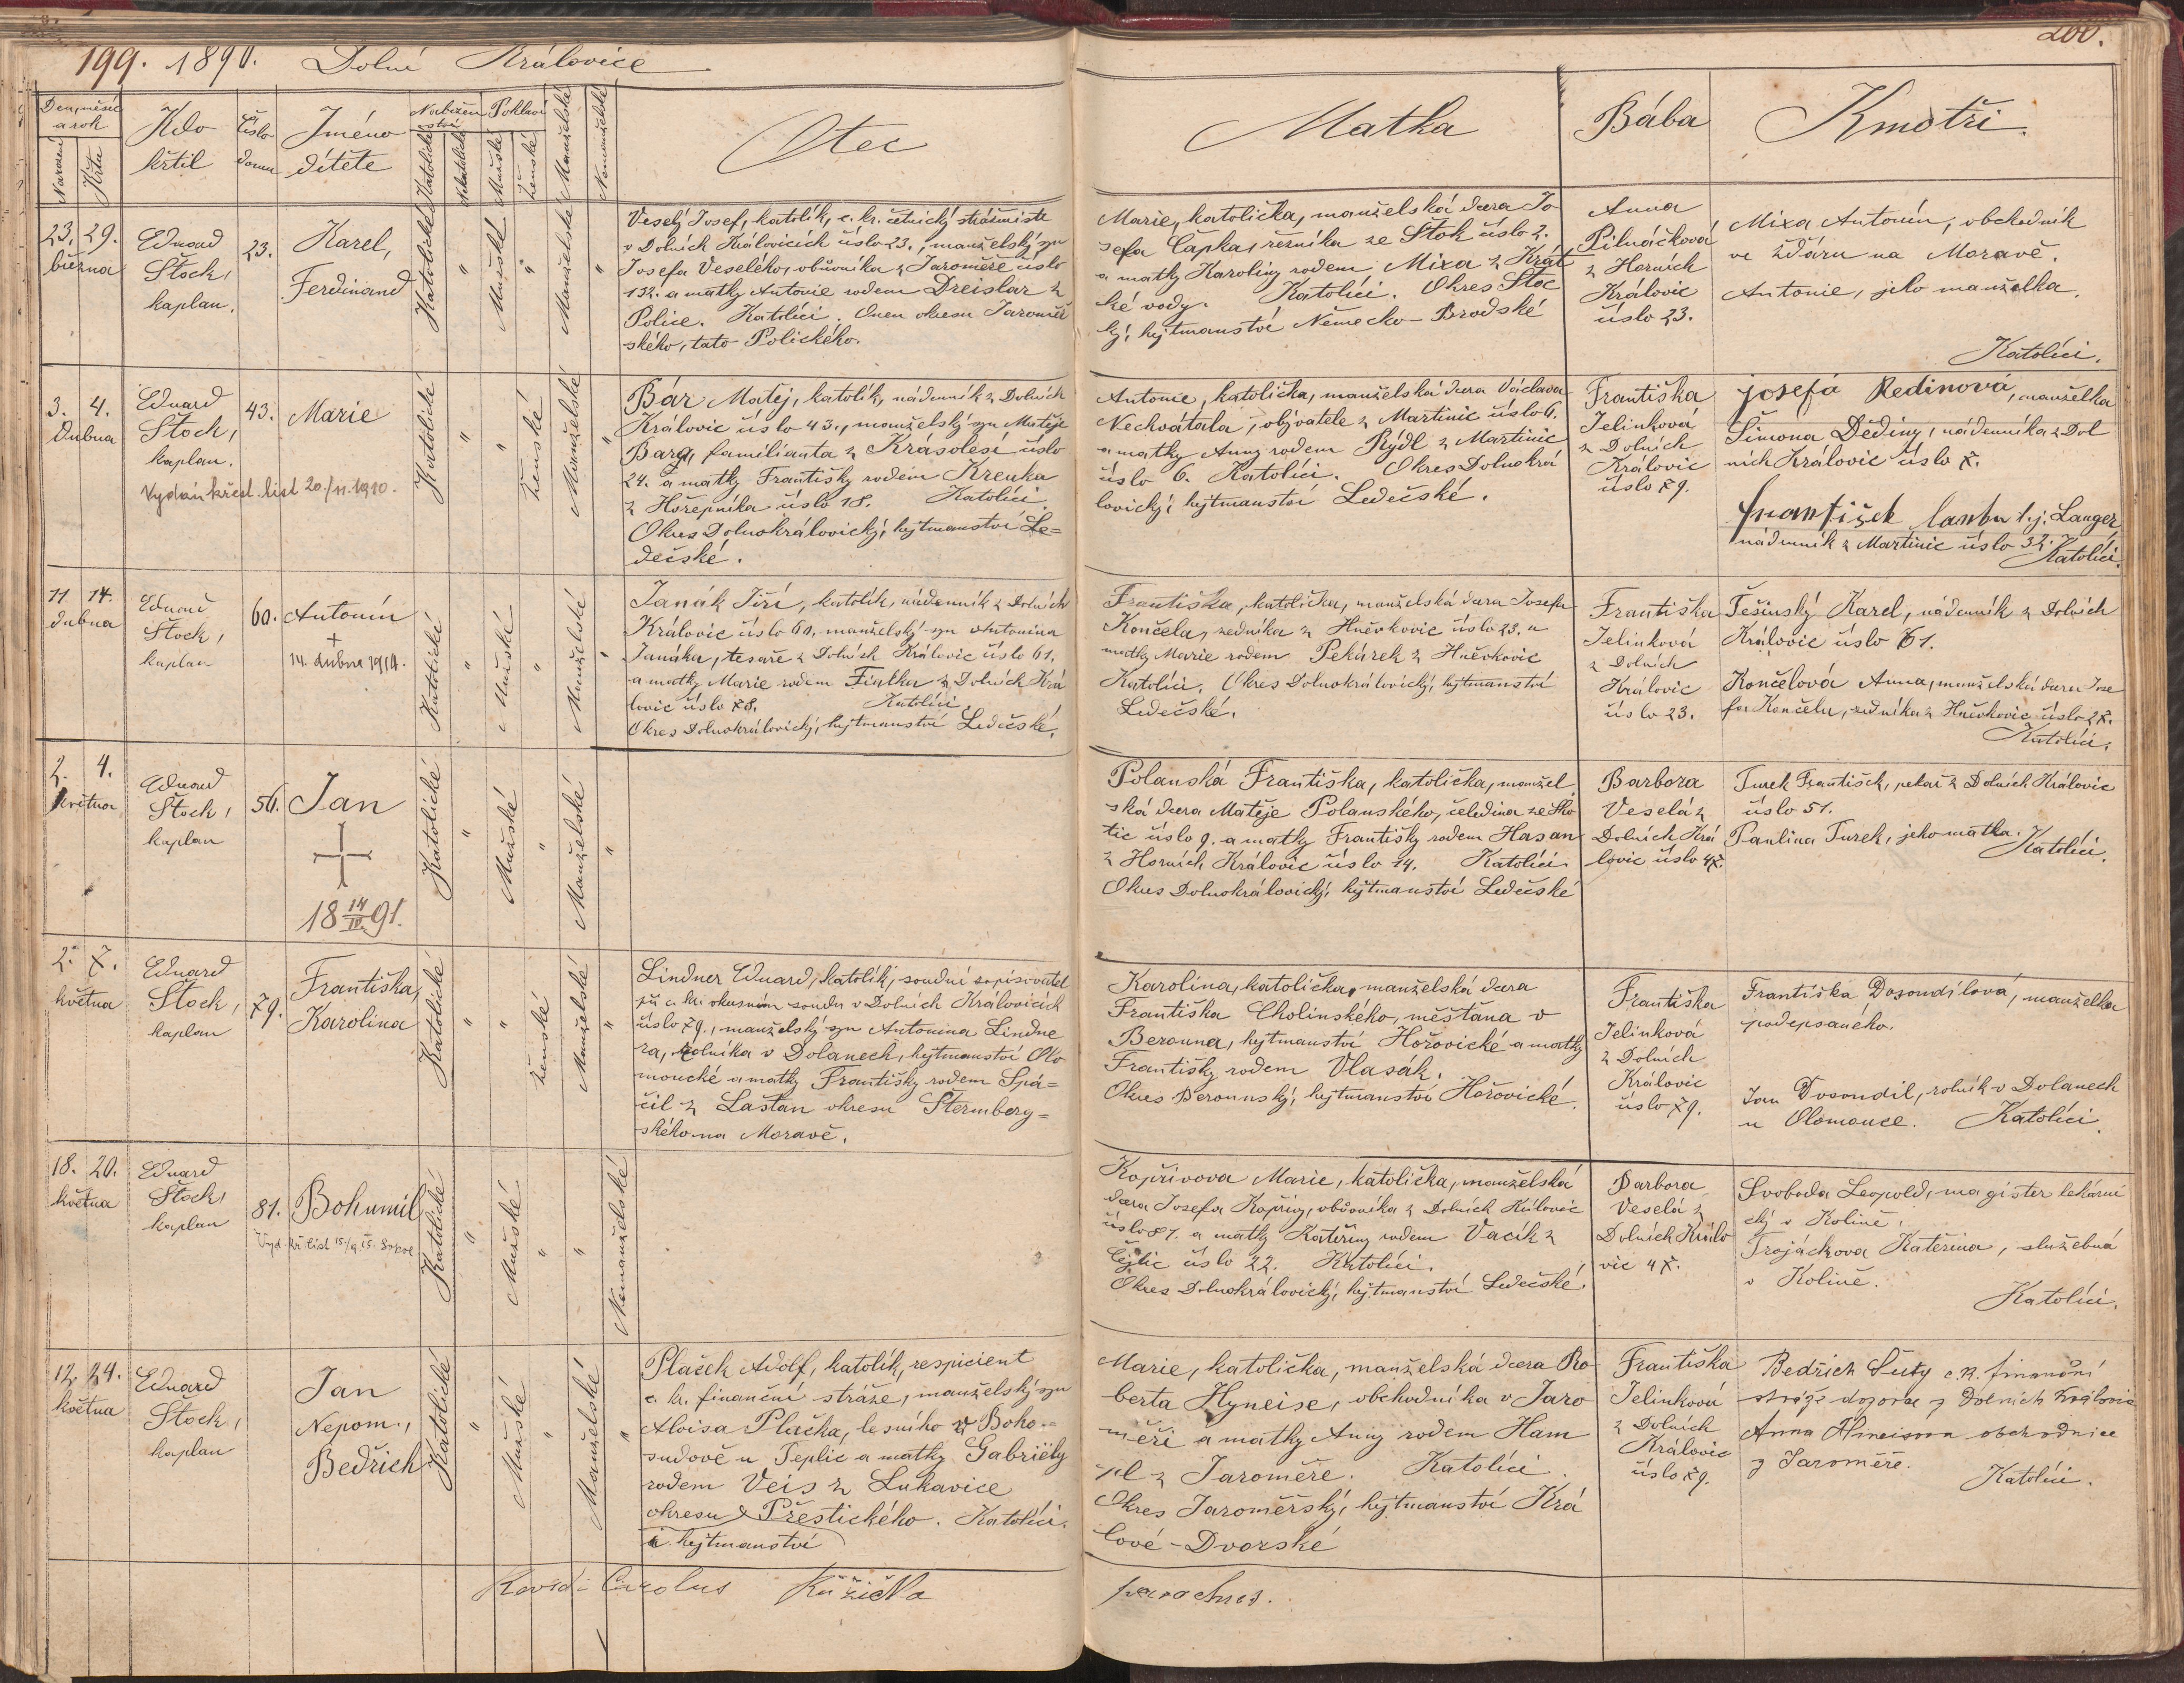 199. 1890. Dolní Královice
200.
Den, měsíc
a rok
Narození
Křtu
Kdo
křtil
Číslo
domu
Jméno
dítěte
Nábožen
ství
Katolické
Nekatolické
Pohlaví
Mužské
Ženské
Manželské
Nemanželské
Otec
Matka
Bába
Kmotři.
23. 29.
března
Eduard
Štoch,
kaplan.
23.
Karel,
Ferdinand
Katolické
"
Mužské
"
Manželské
"
Veselý Josef, katolík, c. kr. četnický strážmistr
v Dolních Královicích číslo 23., manželský syn
Josefa Veselého, obuvníka z Jaroměře číslo
132. a matky Antonie rodem Dreislar z
Police. Katolíci. Onen okresu Jaroměř
ského, tato Polického.
Marie, katolička, manželská dcera Jo
sefa Čapka, řezníka ze Štok číslo 2.
a matky Karoliny rodem Mixa z Krát
ké vody. Katolíci. Okres Štoc
ký, hejtmanství Německo-Brodské
Anna
Pilnáčková
z Horních
Královic
číslo 23.
Mixa Antonín, obchodník
ve Žďáru na Moravě.
Antonie, jeho manželka,
Katolíci.
3. 4.
Dubna
Eduard
Štoch,
kaplan.
Vydán křest. list 20/11. 1910.
43.
Marie
Katolické
"
"
Ženské
Manželské
"
Bár Matěj, katolík, nádenník z Dolních
Královic číslo 43., manželský syn Matěje
Bára, familianta z Krásolesí číslo
24. a matky Františky rodem Krenka
z Hořepníka číslo 18. Katolíci.
Okres Dolnokrálovický, hejtmanství Le=
dečské.
Antonie, katolička, manželská dcera Václava
Nechvátala, obývatele z Martinic číslo 6.
a matky Anny rodem Rýdl z Martinic
číslo 6. Katolíci. Okres Dolnokrá
lovický, hejtmanství Ledečské.
Františka
Jelinková
z Dolních
Královic
číslo 79.
josefa Redinová, manželka
Šimona Dědiny, nádenníka z Dol
ních Královic číslo 7.
František t. j. Langer,
nádenník z Martinic číslo 32. Katolíci.
11. 14.
dubna
Eduard
Štoch,
kaplan
60.
Antonín
+
14. dubna 1914.
Katolické
"
Mužské
"
Manželské
"
Janák Jiří, katolík, nádenník z Dolních
Královic číslo 60, manželský syn Antonína
Janáka, tesaře z Dolních Královic číslo 61.
a matky Marie rodem Fialka z Dolních Krá
lovic číslo 78. Katolíci.
Okres Dolnokrálovický, hejtmanství Ledečské.
Františka, katolička, manželská dcera Josefa
Končela, zedníka z Hněvkovic číslo 23. a
matky Marie rodem Pekárek z Hněvkovic
Katolíci. Okres Dolnokrálovický, hejtmanství
Ledečské.
Františka
Jelinková
z Dolních
Královic
číslo 23.
Těšinský Karel, nádenník z Dolních
Královic číslo 61.
Končelová Anna, manželská dcera Jose
fa Končela, zedníka z Hněvkovic číslo 27.
Katolíci.
2. 4.
května
Eduard
Štoch,
kaplan
56.
Jan
18 14/IV 91.
Katolické
"
Mužské
"
Manželské
"
Polanská Františka, katolička, manžel
ská dcera Matěje Polanského, čeledína ze Sko
tic číslo 9. a matky Františky rodem Hasan
z Horních Královic číslo 14. Katolíci.
Okres Dolnokrálovický, hejtmanství Ledečské
Barbora
Veselá z
Dolních Krá
lovic číslo 47.
Turek František, pekař z Dolních Královic
číslo 51.
Paulina Turek, jeho matka.
Katolíci.
2. 7.
května
Eduard
Štoch,
kaplan
79.
Františka,
Karolina
Katolické
"
"
Ženské
Manželské
"
Lindner Eduard, katolík, soudní sepisovatel
při c. kr. okresním soudu v Dolních Královicích
číslo 79., manželský syn Antonína Lindne
ra, rolníka v Dolanech, hejtmanství Olo
moucké a matky Františky rodem Spá=
čil z Laštan okresu Štermberg=
ského na Moravě.
Karolina, katolička, manželská dcera
Františka Cholinského, měšťana v
Berouna, hejtmanství Hořovické a matky
Františky rodem Vlasák.
Okres Berounský, hejtmanství Hořovické.
Františka
Jelinková
z Dolních
Královic
číslo 79.
Františka Dosoudilová, manželka
podepsaného.
Jan Dosoudil, rolník v Dolanech
u Olomouce. Katolíci.
18. 20.
května
Eduard
Štoch,
kaplan
81.
Bohumil
Katolické
"
Mužské
"
"
Nemanželské
Kopřivova Marie, katolička, manželská
dcera Josefa Kopřivy, obuvníka z Dolních Královic
číslo 81. a matky Kateřiny rodem Vacík z
Čejtic číslo 22. Katolíci.
Okres Dolnokrálovický, hejtmanství Ledečské.
Barbora
Veselá z
Dolních Králo
vic 47.
Svoboda Leopold, magister lekárni
cký v Kolíně,
Trojáckova Kateřina, služebná
v Kolíně.
Katolíci.
12. 24.
května
Eduard
Štoch,
kaplan
Jan
Nepom.,
Bedřich
Katolické
"
Mužské
"
Manželské
"
Plaček Adolf, katolík, respicient
c. kr. finanční stráže, manželský syn
Aloisa Plačka, lesního v Boho=
sudově u Teplic a matky Gabriély
rodem Veis z Lukavice
okresu Přestického. Katolíci.
a hejtmanství
Marie, katolička, manželská dcera Ro
berta Hyneise, obchodníka v Jaro
měři a matky Anny rodem Ham
pl z Jaroměře. Katolíci.
Okres Jaroměřský, hejtmanství Krá
lové-Dvorské
Františka
Jelinková
z Dolních
Královic
číslo 79.
Bedřich Šutý c. k. finanční
stráže dozorce z Dolních Královic
Anna obchodnice
z Jaroměře.
Katolíci.
Carolus Růžička
parochus.